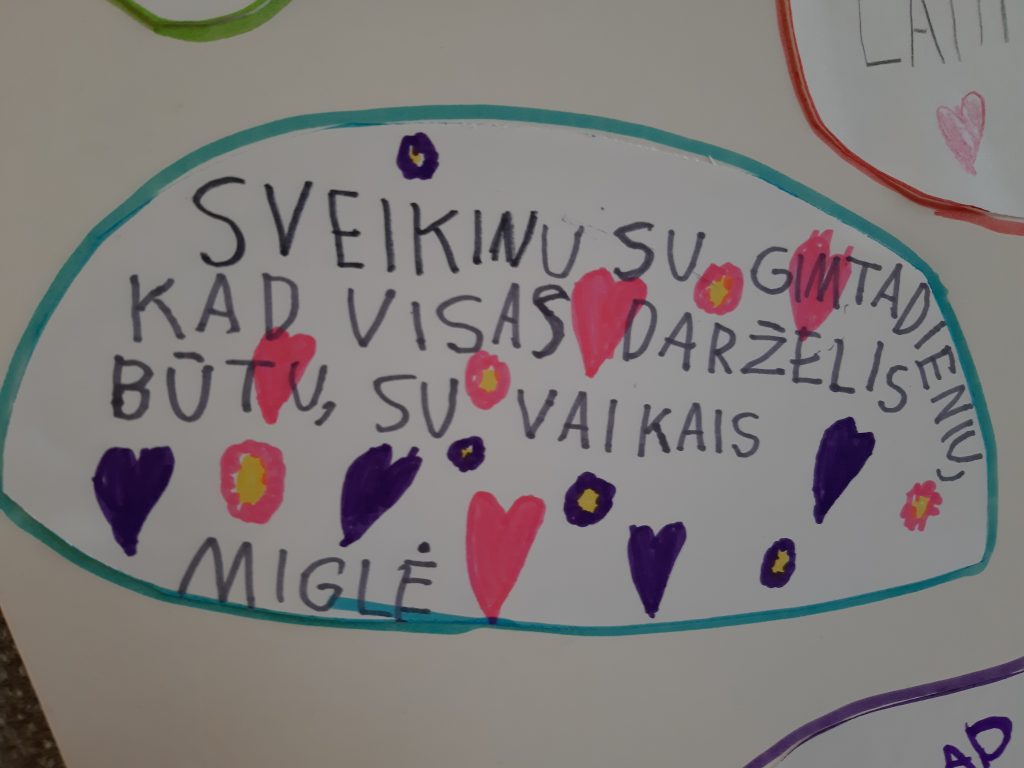 SVEIKINU SU GIMTADIENIU,
KAD VISAS DARŽELIS
BŪTU, SU VAIKAIS
MIGLĖ